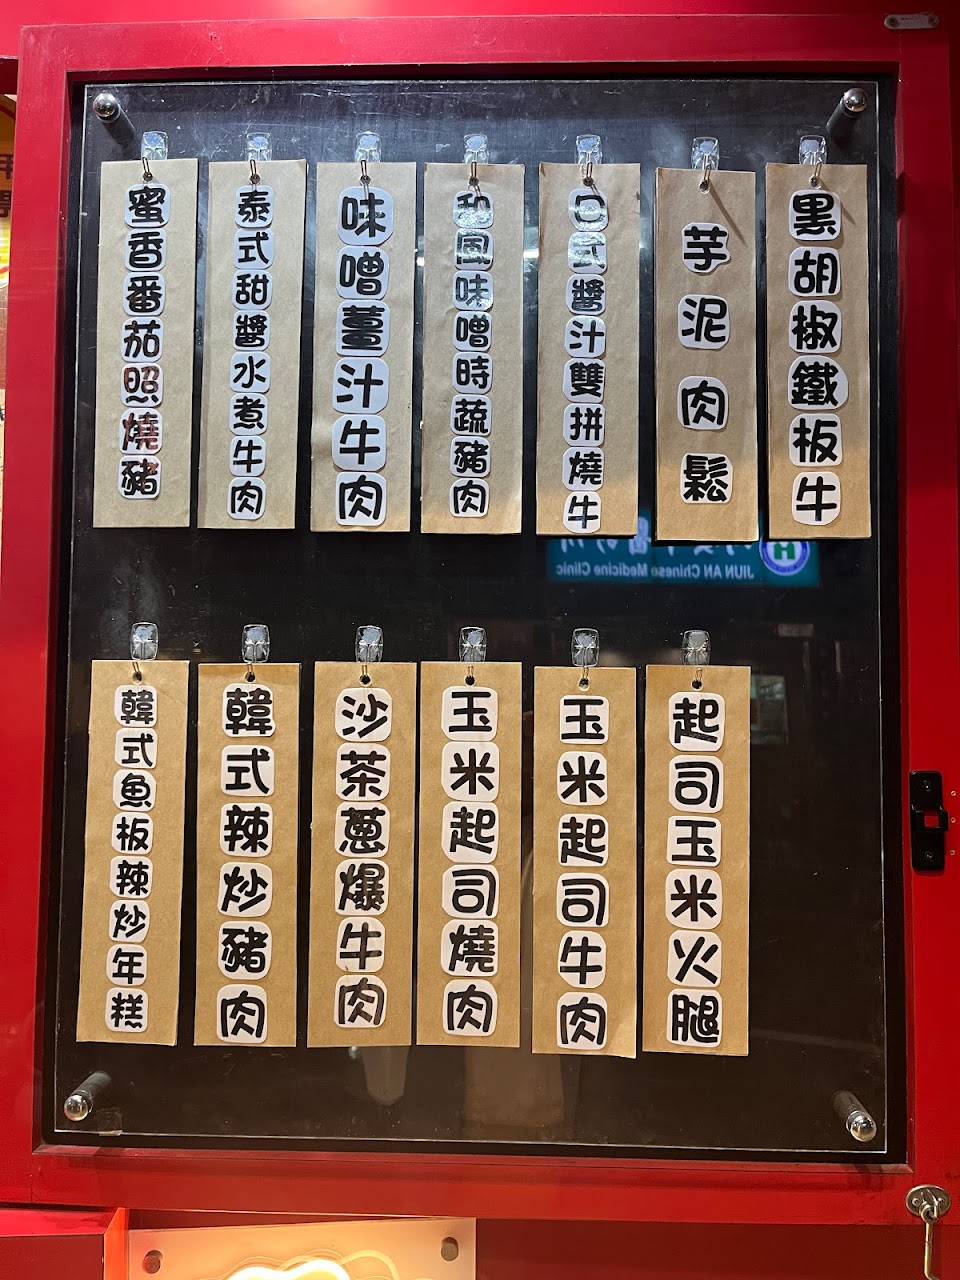 黑胡椒鐵板牛
芋泥肉鬆
口式醬汁雙拼燒牛
和風味噌時蔬豬肉
味噌薑汁牛肉
泰式甜醬水煮牛肉
蜜香番茄照燒豬
起司玉米火腿
玉米起司牛肉
玉米起司燒肉
沙茶蔥爆牛肉
韓式辣炒豬肉
韓式魚板辣炒年糕
JIUN AN Chinese Medicine Clinic